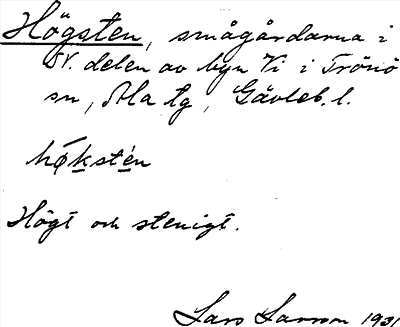 Högsten, smågårdarna i
SV. delen av byn Vi i Trönö
sn, Ala tg, Gävleb. l.
hǿkstén
Högt och stenigt.
Lars Larsson 1931